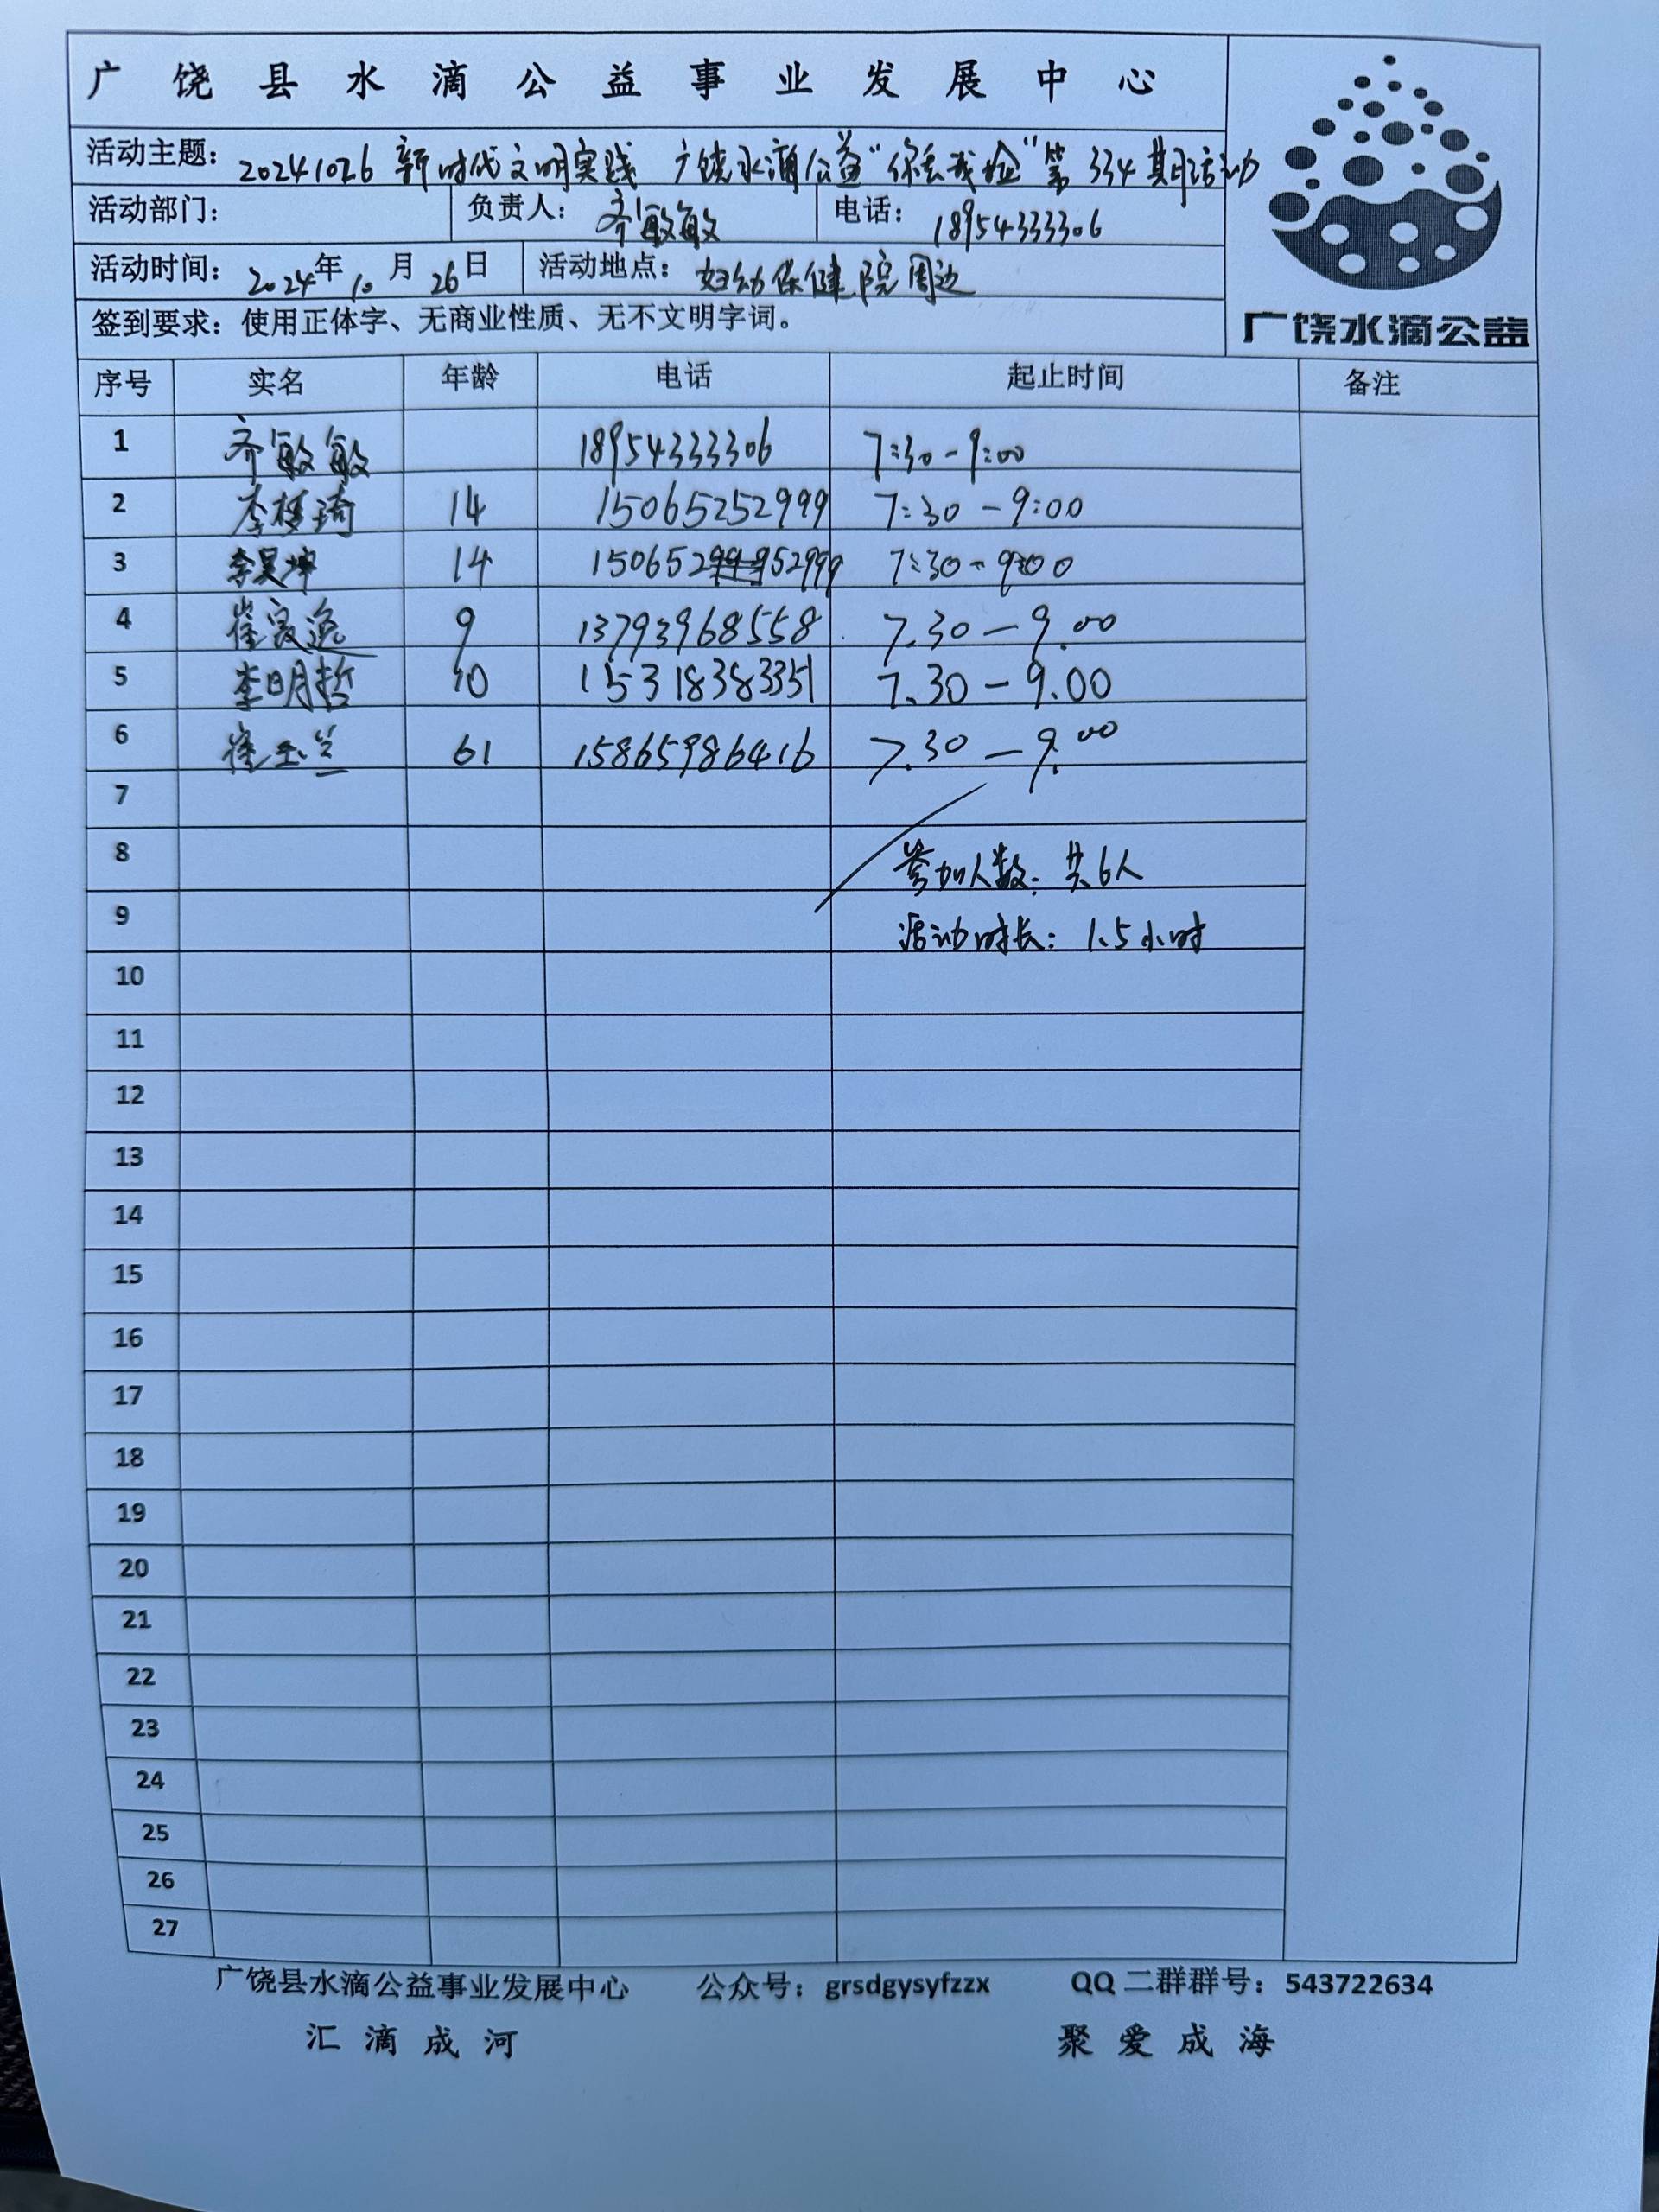 广饶县水滴公益事业发展中心
活动主题：20241026 新时代文明实践 广饶水滴公益“你丢我捡”第334期活动
活动部门： 负责人：齐敏敏 电话：18954333306
活动时间：2024年10月26日 活动地点：妇幼保健院周边
签到要求：使用正体字、无商业性质、无不文明字词。
广饶水滴公益
序号 实名 年龄 电话 起止时间 备注
1 齐敏敏 18954333306 7:30-9:00
2 李梓琦 14 15065252999 7:30-9:00
3 李昊坤 14 15065252999 7:30-9:00
4 崔 逸 9 13793968558 7.30-9.00
5 李明哲 10 15318383351 7.30-9.00
6 崔玉兰 61 15865986416 7.30-9.00
7
8 参加人数：共6人
9 活动时长：1.5小时
10
11
12
13
14
15
16
17
18
19
20
21
22
23
24
25
26
27
广饶县水滴公益事业发展中心 公众号：grsdgysyfzzx QQ二群群号：543722634
汇滴成河 聚爱成海